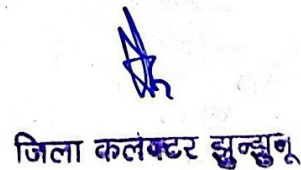 जिला कलक्टर झुन्झुनू